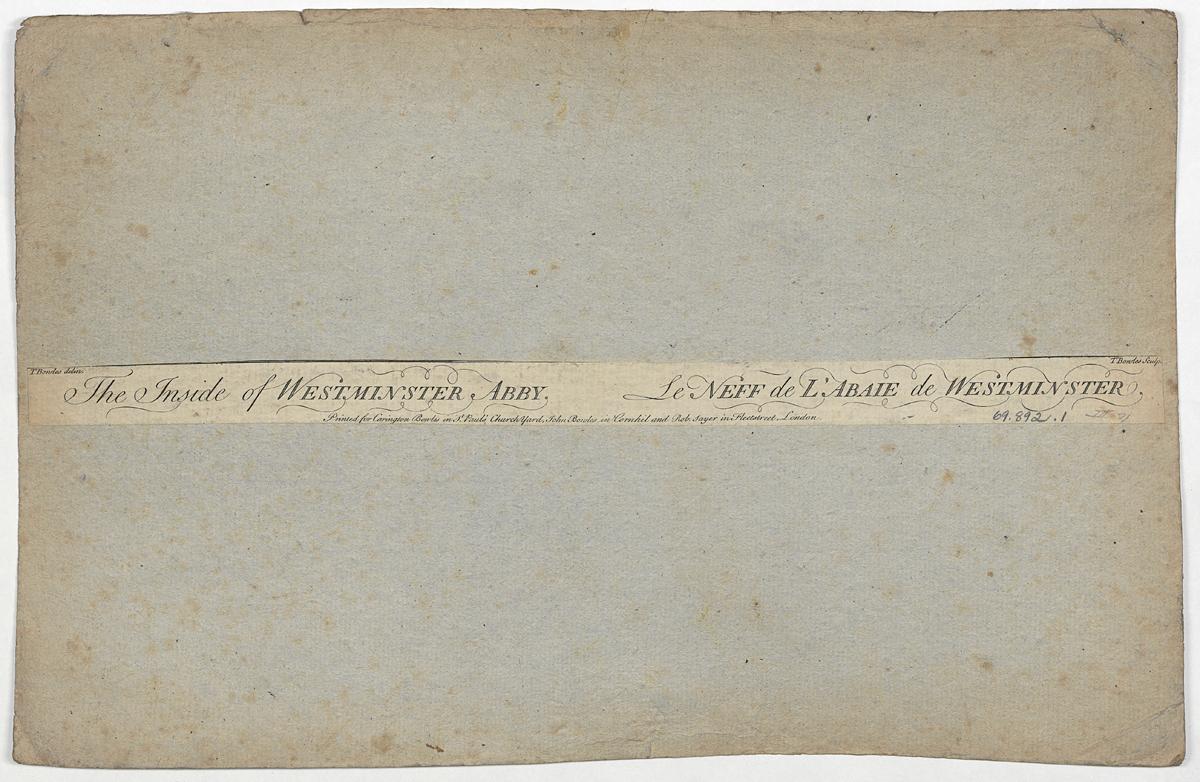 T Bowles delin.
T Bowles Sculp.
The Inside of WESTMINSTER ABBY,
Le NEFF de L'ABAIE de WESTMINSTER,
Printed for Carington Bowles in St. Pauls Church Yard, John Bowles, in Cornhil and Rob. Sayer in Fleetstreet, London
69.892.1